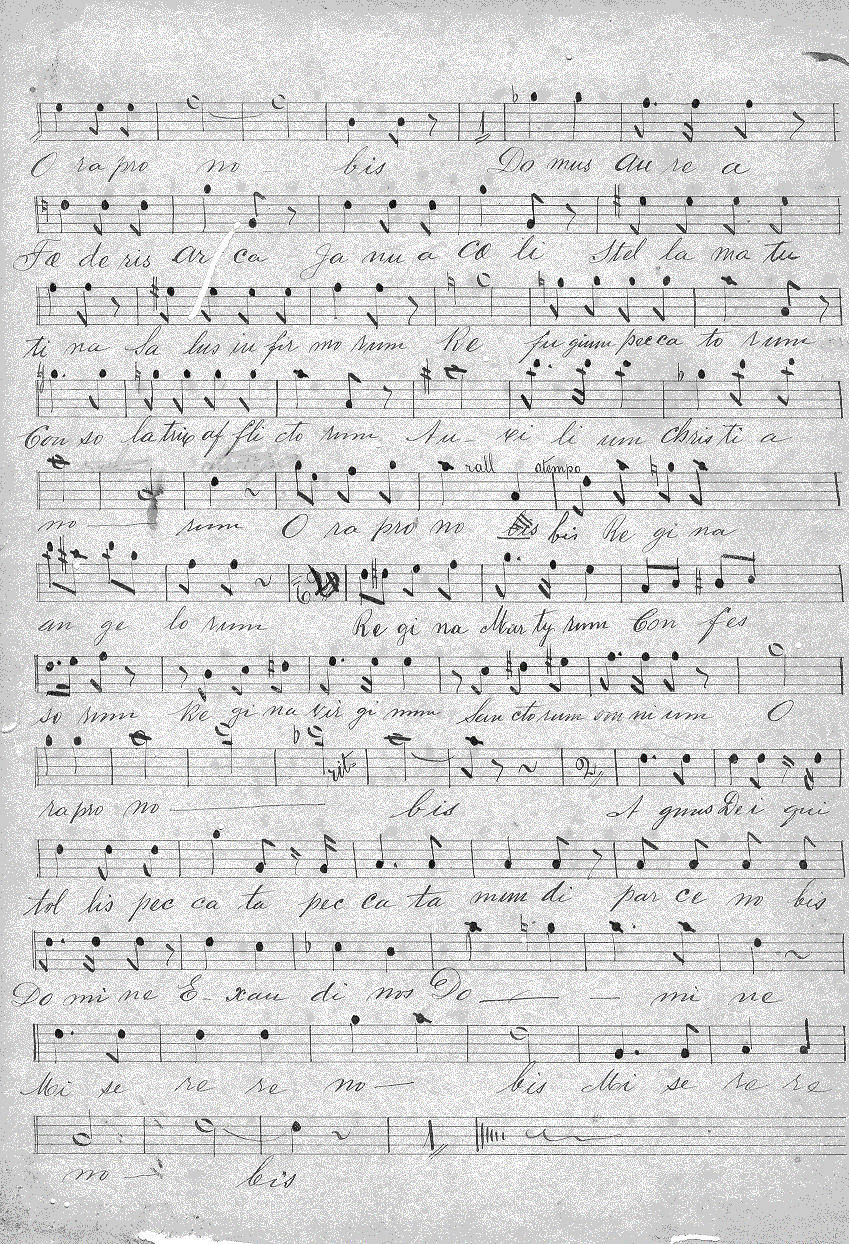 O ra pro no - bis Do mus au re a
Fœ de ris ar ca Ja nu a cœ li Stel la ma tu
ti na Sa lus in fir mo rum Re fu gium pecca to rum
Con so latrix af fli cto rum Au - xi li um Chris ti a
rall atempo
no - rum O ra pro no bis Re gi na
an ge lo rum Re gi na Mar ty rum Con fes
so rum Re gi na vir gi num San cto rum om ni um O
rit.
ra pro no - bis A gnus De i qui
tol lis pec ca ta pec ca ta mun di par ce no bis
Do mi ne E - xau di nos Do - - mi ne
Mi se re re no - bis Mi se re re
no - bis